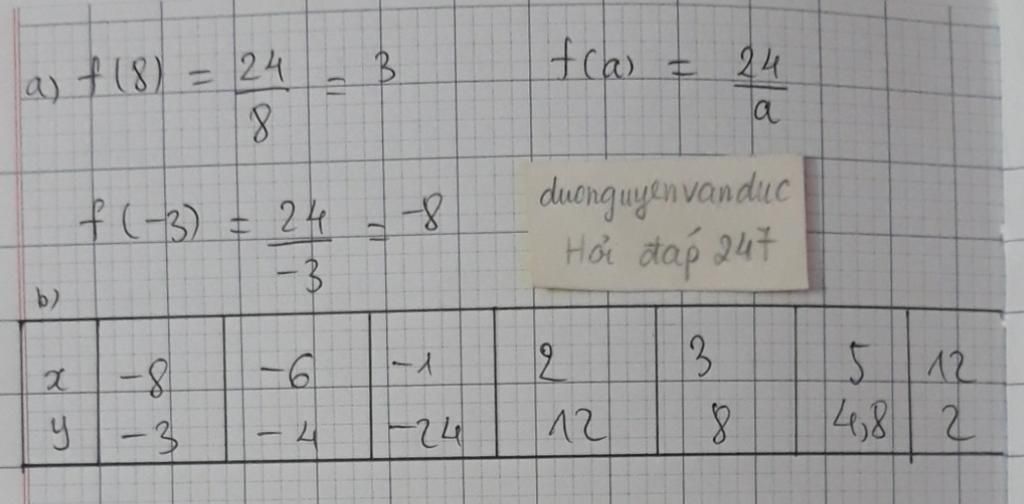 a) f(8) = 24/8 = 3
f(a) = 24/a
f(-3) = 24/-3 = -8
duonguyenvanduc
Hỏi đáp 247
b)
x -8 -6 -1 2 3 5 12
y -3 -4 -24 12 8 4,8 2